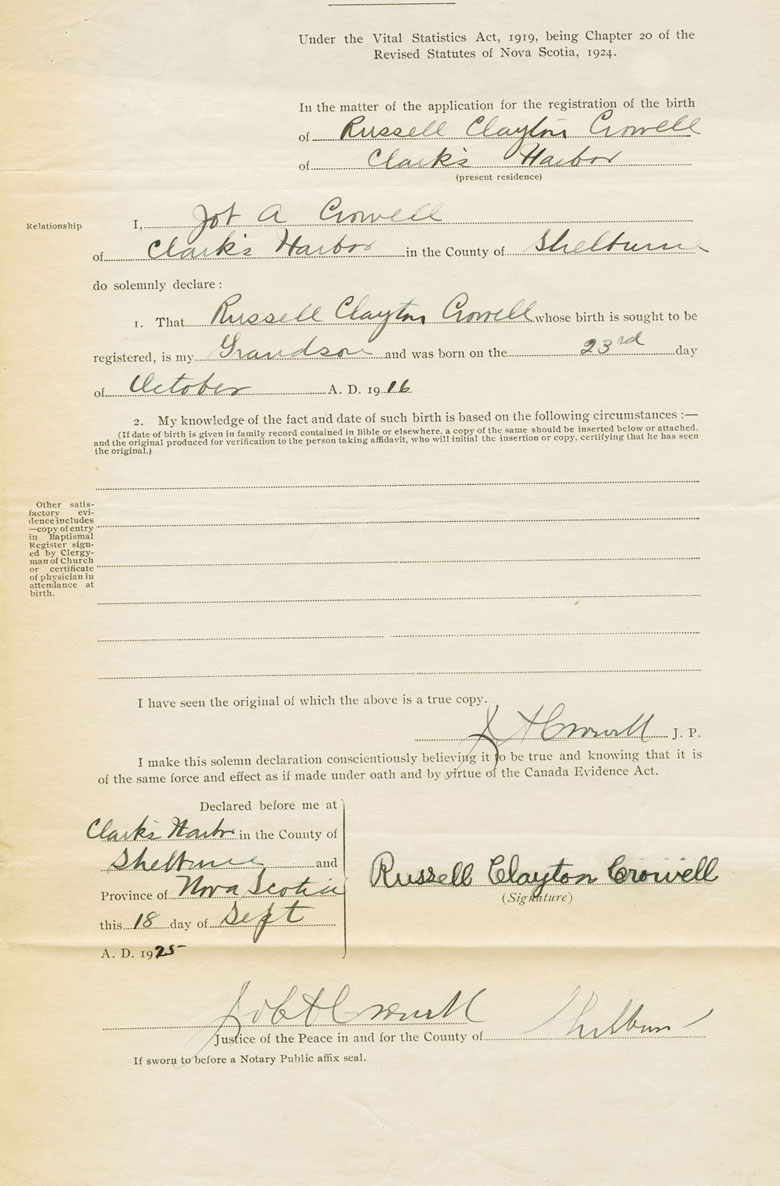 Under the Vital Statistics Act, 1919, being Chapter 20 of the
Revised Statutes of Nova Scotia, 1924.
In the matter of the application for the registration of the birth
of Russell Clayton Crowell
of Clark's Harbor
(present residence)
Relationship
I, Job A Crowell
of Clark's Harbor in the County of Shelburne
do solemnly declare:
1. That Russell Clayton Crowell whose birth is sought to be
registered, is my Grandson and was born on the 23rd day
of October A. D. 1916.
2. My knowledge of the fact and date of such birth is based on the following circumstances :—
(If date of birth is given in family record contained in Bible or elsewhere, a copy of the same should be inserted below or attached,
and the original produced for verification to the person taking affidavit, who will initial the insertion or copy, certifying that he has seen
the original.)
Other satis-
factory evi-
dence includes
—copy of entry
in Baptismal
Register sign-
ed by Clergy-
man of Church
or certificate
of physician in
attendance at
birth.
I have seen the original of which the above is a true copy.
Crowell J. P.
I make this solemn declaration conscientiously believing it to be true and knowing that it is
of the same force and effect as if made under oath and by virtue of the Canada Evidence Act.
Declared before me at
Clark's Harbor in the County of
Shelburne and
Province of Nova Scotia
this 18 day of Sept
A. D. 1925
Russell Clayton Crowell
(Signature)
Job A Crowell
Justice of the Peace in and for the County of Shelburne
If sworn to before a Notary Public affix seal.